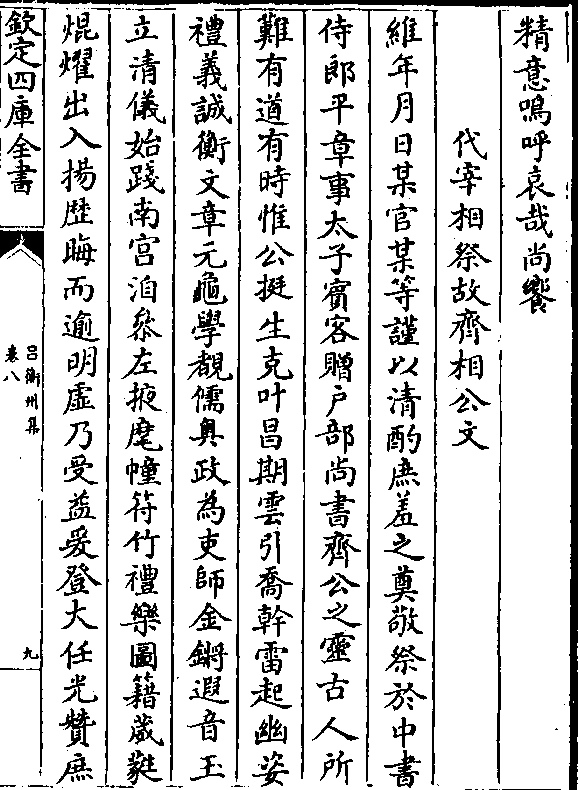 精意嗚呼哀哉尚饗
代宰相祭故齊相公文
維年月日某官某等謹以清酌庶羞之奠敬祭於中書
侍郎平章事太子賓客贈户部尚書齊公之靈古人所
難有道有時惟公挺生克叶昌期雲引喬幹雷起幽姿
禮義誠衡文章元龜學覩儒奥政為吏師金鏘遐音玉
立清儀始踐南宫洎叅左掖麾幢符竹禮樂圖籍葳蕤
焜燿出入揚歴晦而逾明虚乃受益爰登大任光贊庶
欽定四庫全書
吕衡州集
卷八
九